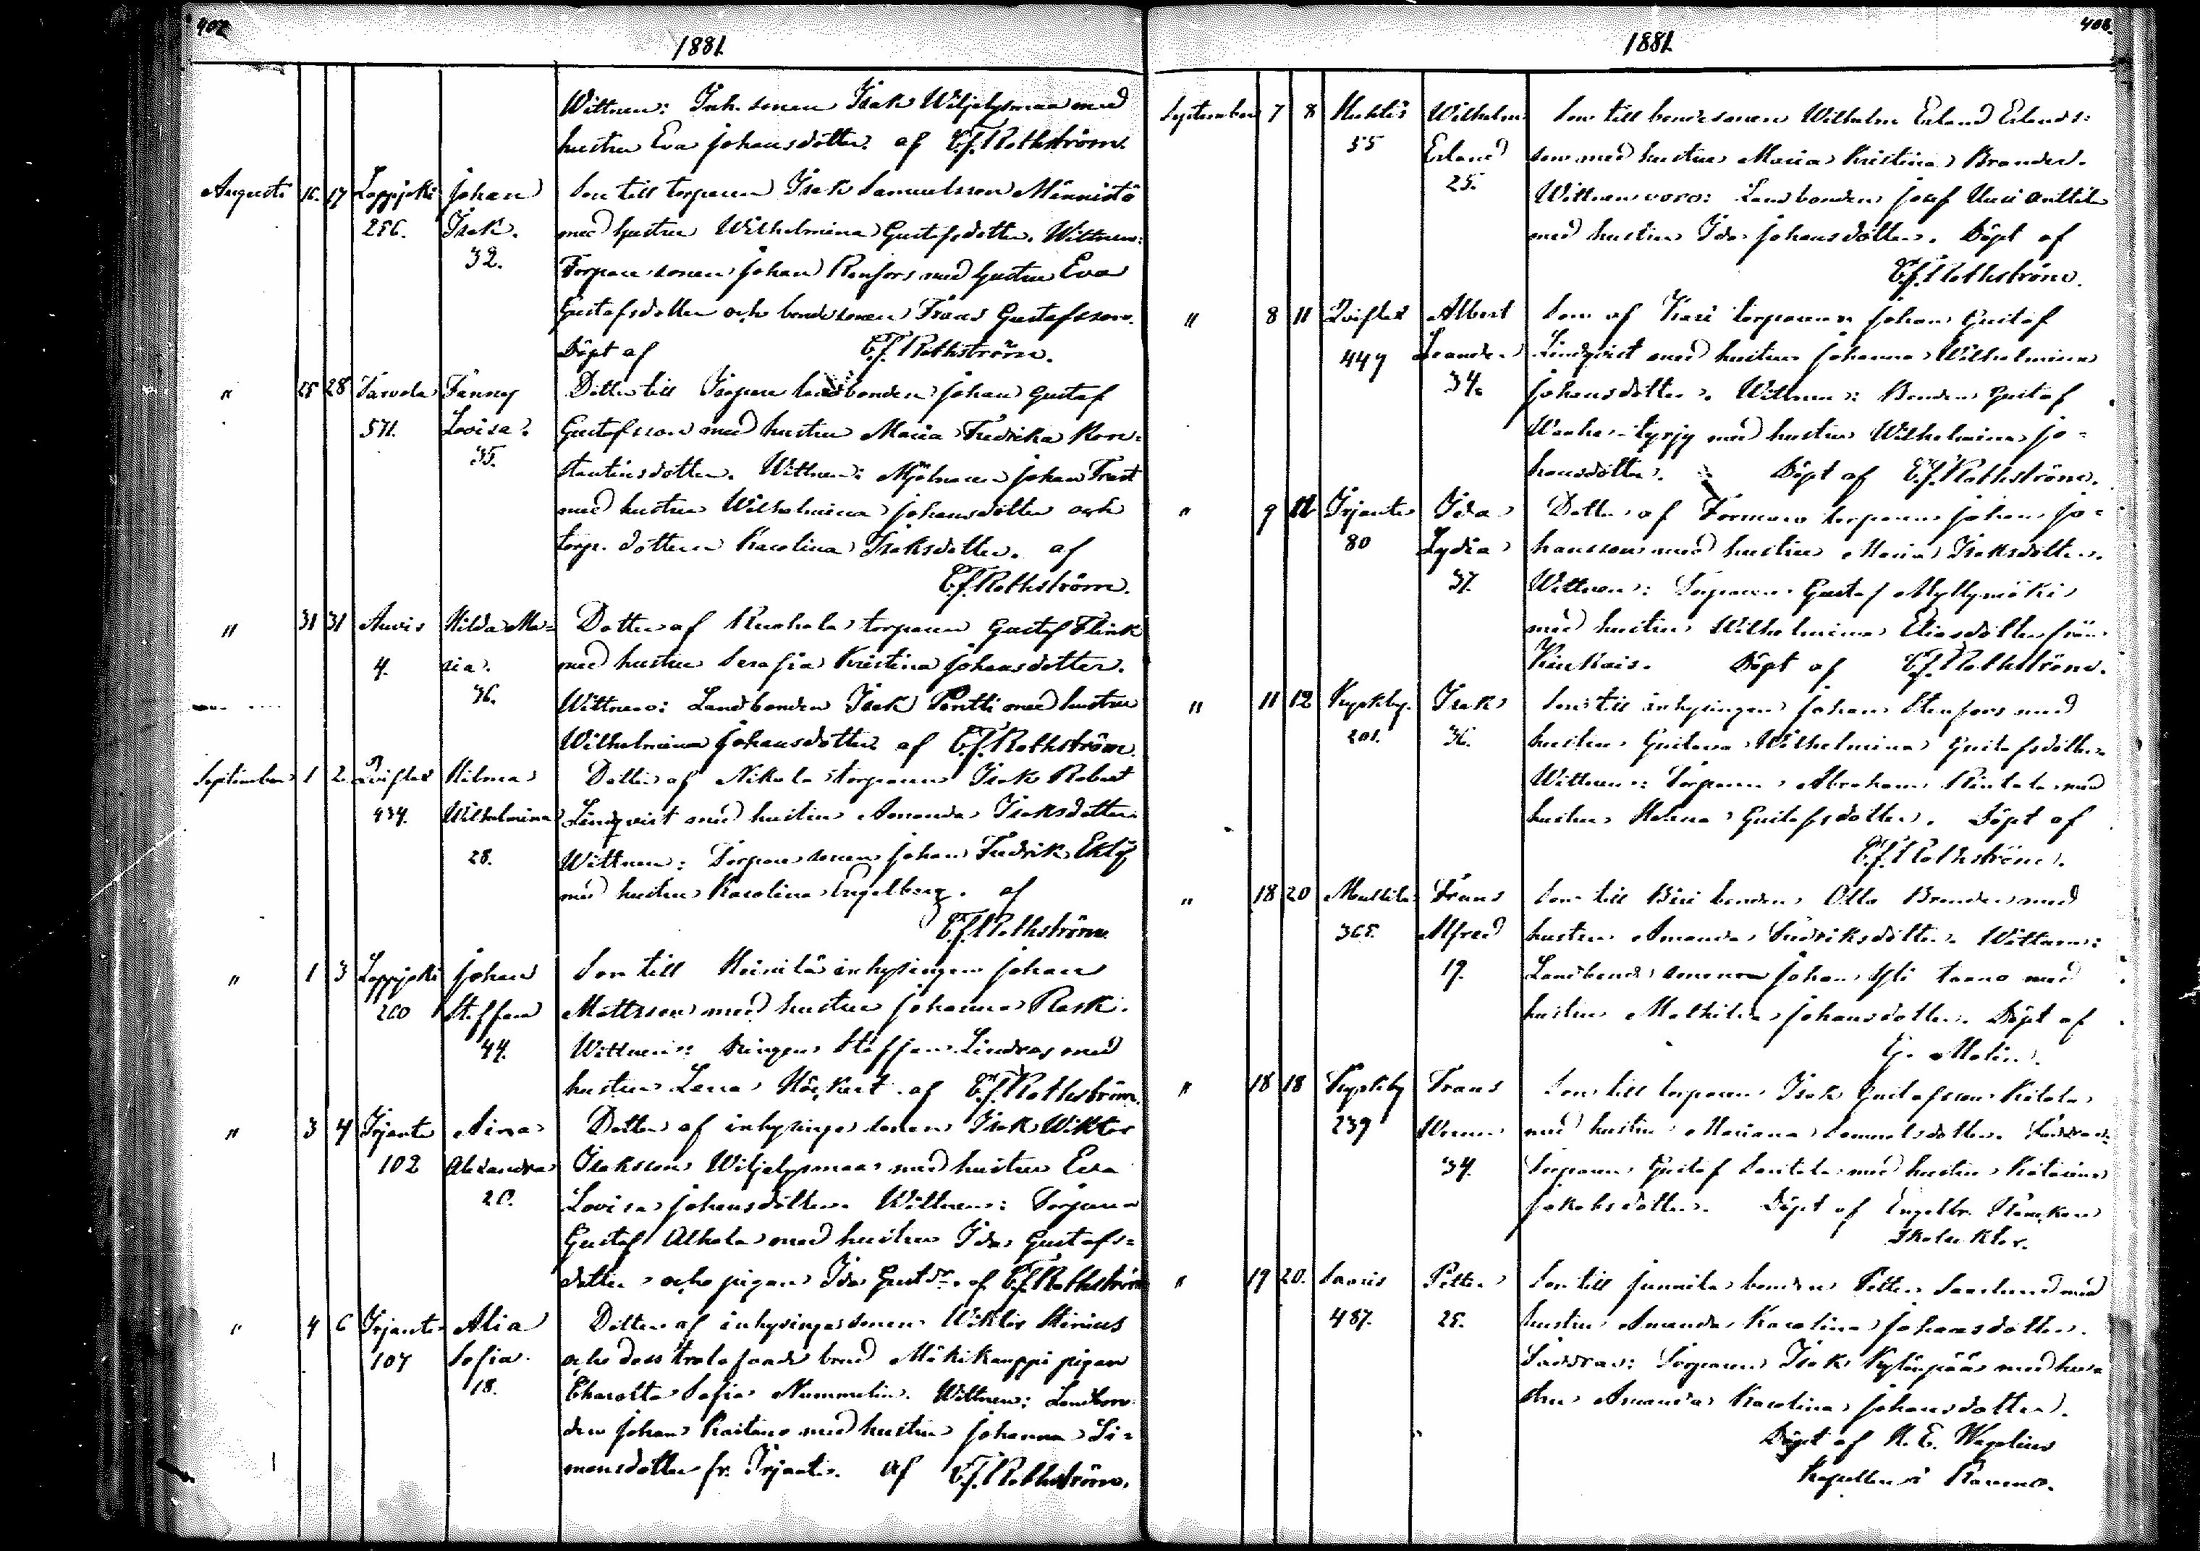 402
1881.
Wittnen: Inh. sonen Isak Wiljelysmaa med
hustru Eva Johansdotter af C.J. Rothström.
Augusti 16. 17 Lappijoki Johan Son till torparen Isak Samuelsson Männistö
256. Isak. med hustru Wilhelmina Gustafsdotter. Wittnen:
32. Torpare sonen Johan Renfors med hustru Eva
Gustafsdotter och bondesonen Frans Gustafsson.
Döpt af C.J. Rothström.
" 25 28 Tarvola Fanny Dotter till Isopere landbonden Johan Gustaf
571. Lovisa. Gustafsson med hustru Maria Fredrika Kon-
35. stantinsdotter. Wittnen: Mjölnaren Johan Trast
med hustru Wilhelmina Johansdotter och
torp. dottern Karolina Isaksdotter. af
C.J. Rothström.
" 31 31 Auvis Hilda Ma- Dotter af Ruohola torparen Gustaf Flink
4. ria. med hustru Serafia Kristina Johansdotter.
36. Wittnen: Landbonden Isak Pertti med hustru
Wilhelmina Johansdotter af C.J. Rothström.
September 1 2. Qviflax Hilma Dotter af Nikola torparen Isak Robert
434. Wilhelmina Lindqvist med hustru Amanda Isaksdotter
28. Wittnen: Torpare sonen Johan Fredrik Eklöf
med hustru Karolina Engelberg. af
C.J. Rothström.
" 1 3 Lappijoki Johan Son till Heinilä inhysingen Johan
200 Steffan Mattsson med hustru Johanna Rask.
44. Wittnen: Steffan Lindros med
hustru Lena Höckert af C.J. Rothström.
" 3 4 Irjante Aina Dotter af inhysinge sonen Isak Wiktor
102 Alexandra Isaksson Wiljelysmaa med hustru Eva
20. Lovisa Johansdotter. Wittnen: Torparen
Gustaf Alhola med hustru Ida Gustafs-
dotter och pigan Ida Gustdr. af C.J. Rothström
" 4 6 Irjante Alia Dotter af inhysingesonen Wiktor Stenius
107 Sofia. och dess trolofvade brud Mäkikauppi pigan
18. Charotta Sofia Nummelin. Wittnen: Landbon-
den Johan Raitano med hustru Johanna Si-
monsdotter fr. Irjante. af C.J. Rothström.
408.
1881.
September 7 8 Huhtis Wilhelm Son till bondesonen Wilhelm Erland Erlands-
55 Erland son med hustru Maria Kristina Brander.
25. Wittnen voro: Landbonden Josef Uusi Anttila
med hustru Ida Johansdotter. Döpt af
C.J. Rothström.
" 8 11 Qviflax Albert Son af Kari torparen Johan Gustaf
447 Leander Lindqvist med hustru Johanna Wilhelmina
34. Johansdotter. Wittnen: Bonden Gustaf
med hustru Wilhelmina Jo-
hansdotter. Döpt af C.J. Rothström.
" 9 11 Irjante Ida Dotter af Formars torparen Johan Jo-
80 Lydia hansson med hustru Maria Isaksdotter.
37. Wittnen: Torparen Gustaf Myllymäki
med hustru Wilhelmina Eliasdotter från
Kiukais. Döpt af C.J. Rothström.
" 11 12 Kyrkby. Isak Son till inhysingen Johan Stenfors med
201. 36. hustru Gustava Wilhelmina Gustafsdotter
Wittnen: Torparen Abraham Rintala med
hustru Helena Gustafsdotter. Döpt af
C.J. Rothström.
" 18 20 Mullila Frans Son till Biri bonden Otto Brander med
365. Alfred hustru Amanda Fredriksdotter. Wittnen:
19. Landbonde sonen Johan Yli taano med
hustru Mathilda Johansdotter. Döpt af
G. Molin.
" 18 18 Kyrkby Frans Son till torparen Isak Gustafsson Kitola
239 Werner med hustru Mariana Samuelsdotter. Faddrar:
34. Torparen Gustaf Santala med hustru Katarina
Jakobsdotter. Döpt af Engelbr.
" 19 20. Saaris Petter Son till Junnila bonden Petter Saarlund med
487. 25. hustru Amanda Karolina Johansdotter.
Faddrar: Torparen Isak Kylänpää med hu-
stru Amanda Karolina Johansdotter.
Döpt af K. E. Wegelius
Kapellan i Raumo.